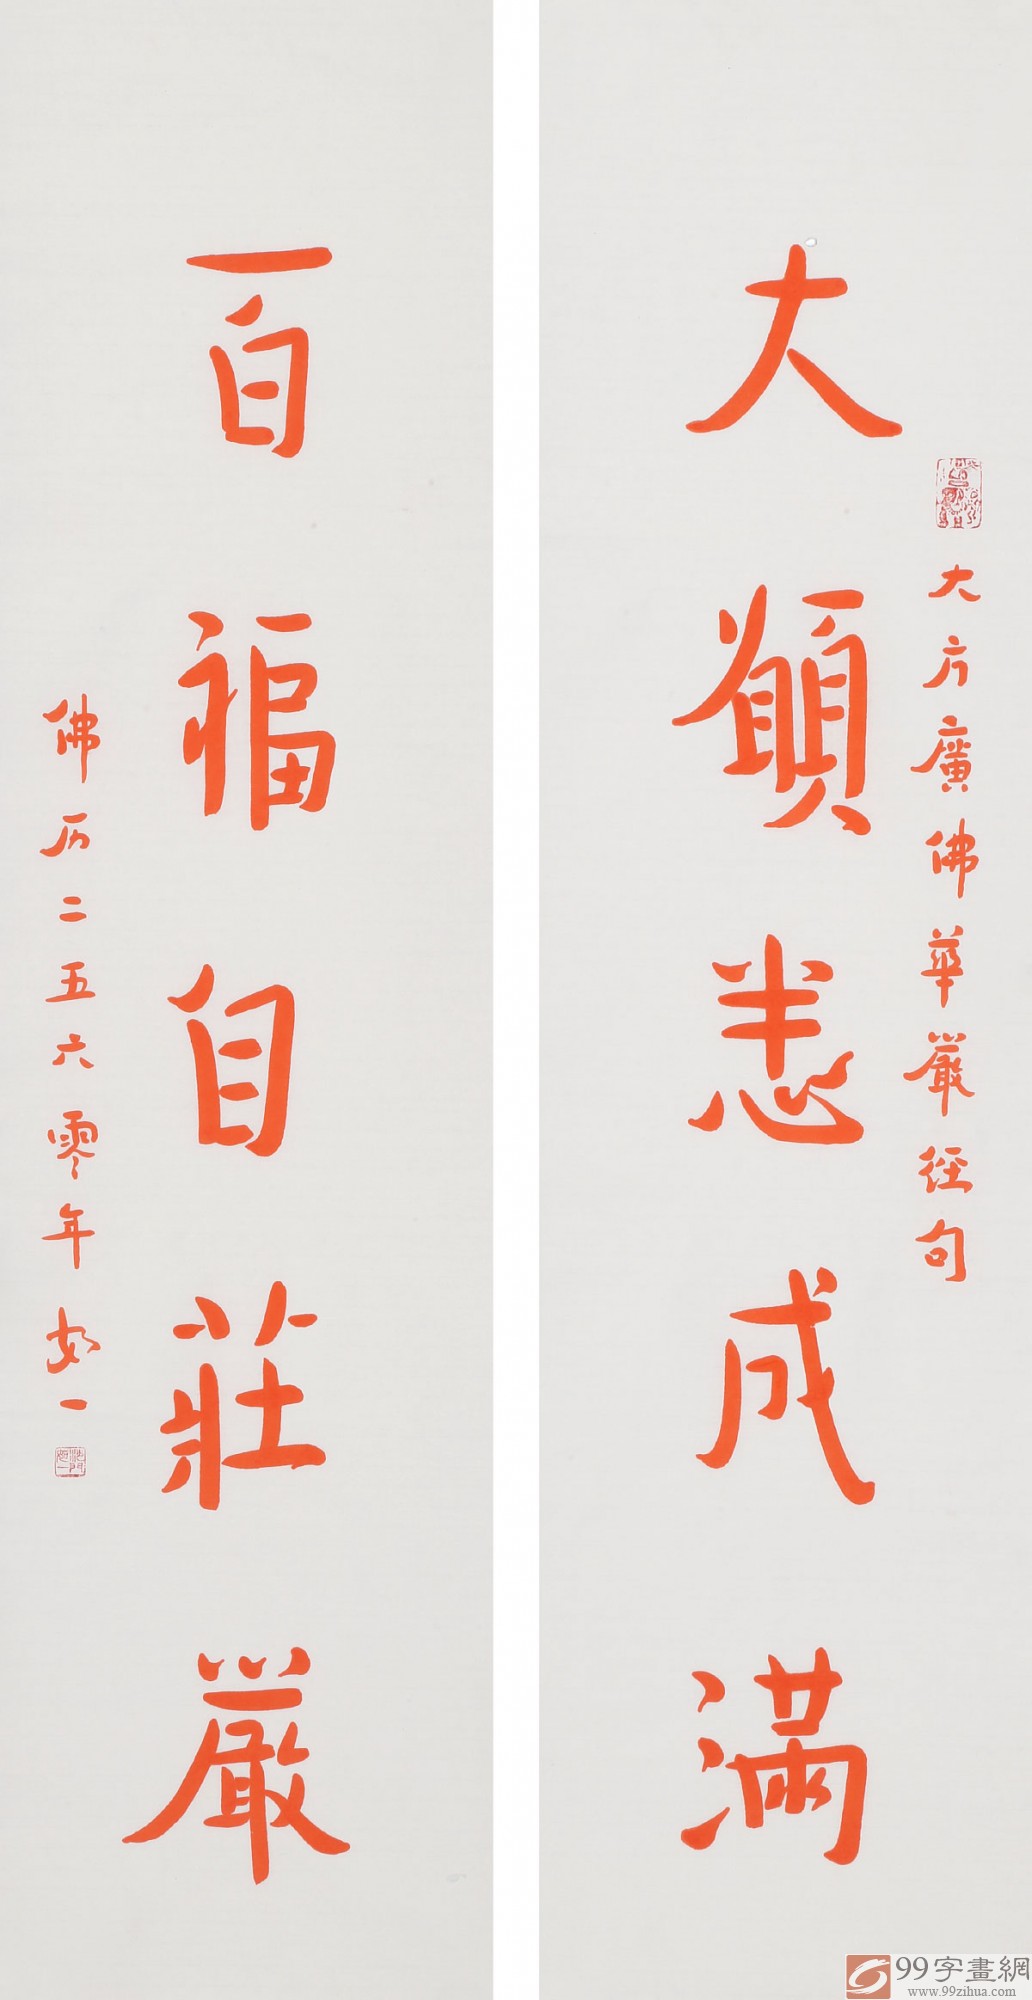 大願悉成滿
大方廣佛華嚴経句
百福自莊嚴
佛历二五六零年如一
99字畫網
www.99zihua.com